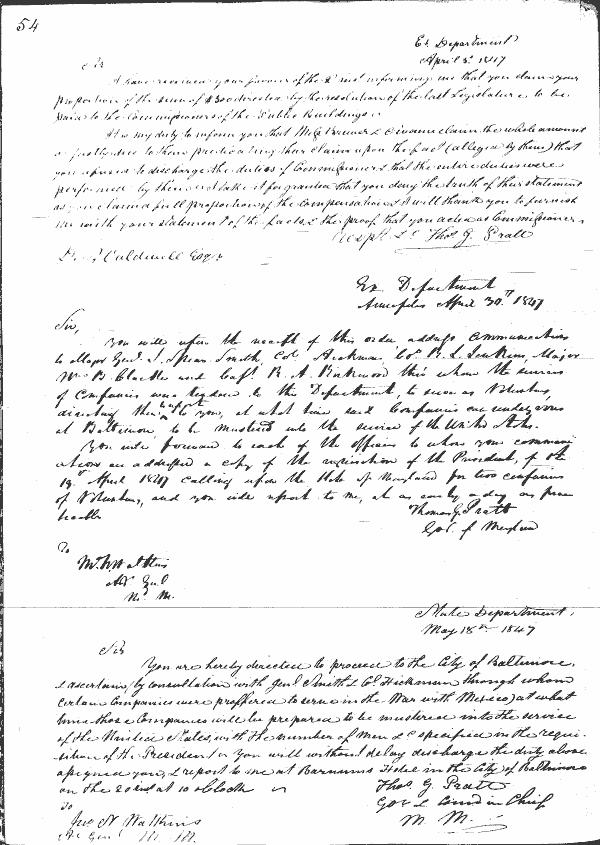 54
Ex Department
April 8th 1847
Sir
I have received your favour of the 2d inst informing me that you claim your
proportion of the sum of $300 directed by the resolution of the last Legislature to be
paid to the Commissioners of the Public Buildings
It is my duty to inform you that claim the whole amount
as justly due to them predicating their claim upon the fact (alleged by them) that
you refused to discharge the duties of Commissioner & that the entire duties were
performed by them take it for granted that you deny the truth of their statement
as you claim a full proportion of the Compensation & I will thank you to furnish
me with your statement of the facts & the proof that you acted as Commissioner
Respt &c Thos G. Pratt
Caldwell Esqr
Ex Department
Annapolis April 30th 1847
Sir,
You will upon the receipt of this order address Communications
to Major Genl Smith Col Hickman, Col Jenkins, Major
Wm B. Clarke and Capt Kirkwood thro' whom the services
of Companies was tendered to this Department, to serve as Volunteers,
directing them to inform you, at what time said Companies can rendezvous
at Baltimore, to be mustered into the service of the United States.
You will forward to each of the officers to whom your communi
cations are addressed a copy of the requisition of the President, of the
19th April 1847 calling upon the State of Maryland for two companies
of Volunteers, and you will report to me, at as early a day as prac
ticable
Thomas G. Pratt
Gov. of Maryland
To
Watkins
Adt Genl
Md M.
State Department,
May 18th 1847
Sir
You are hereby directed to proceed to the City of Baltimore,
& ascertain by consultation with Genl Smith & Col Hickman through whom
certain Companies were proffered to serve in the War with Mexico, at what
time those Companies will be prepared to be mustered into the service
of the United States, with the number of Men &c specified in the requi
sition of the President. You will without delay discharge the duty above
assigned you, & report to me at Barnums Hotel in the City of Baltimore
on the 20 inst at 10 oClock
Thos. G. Pratt
Gov & Comd in Chief
M. M.
To
Jno N Watkins
Ad Genl M. M.